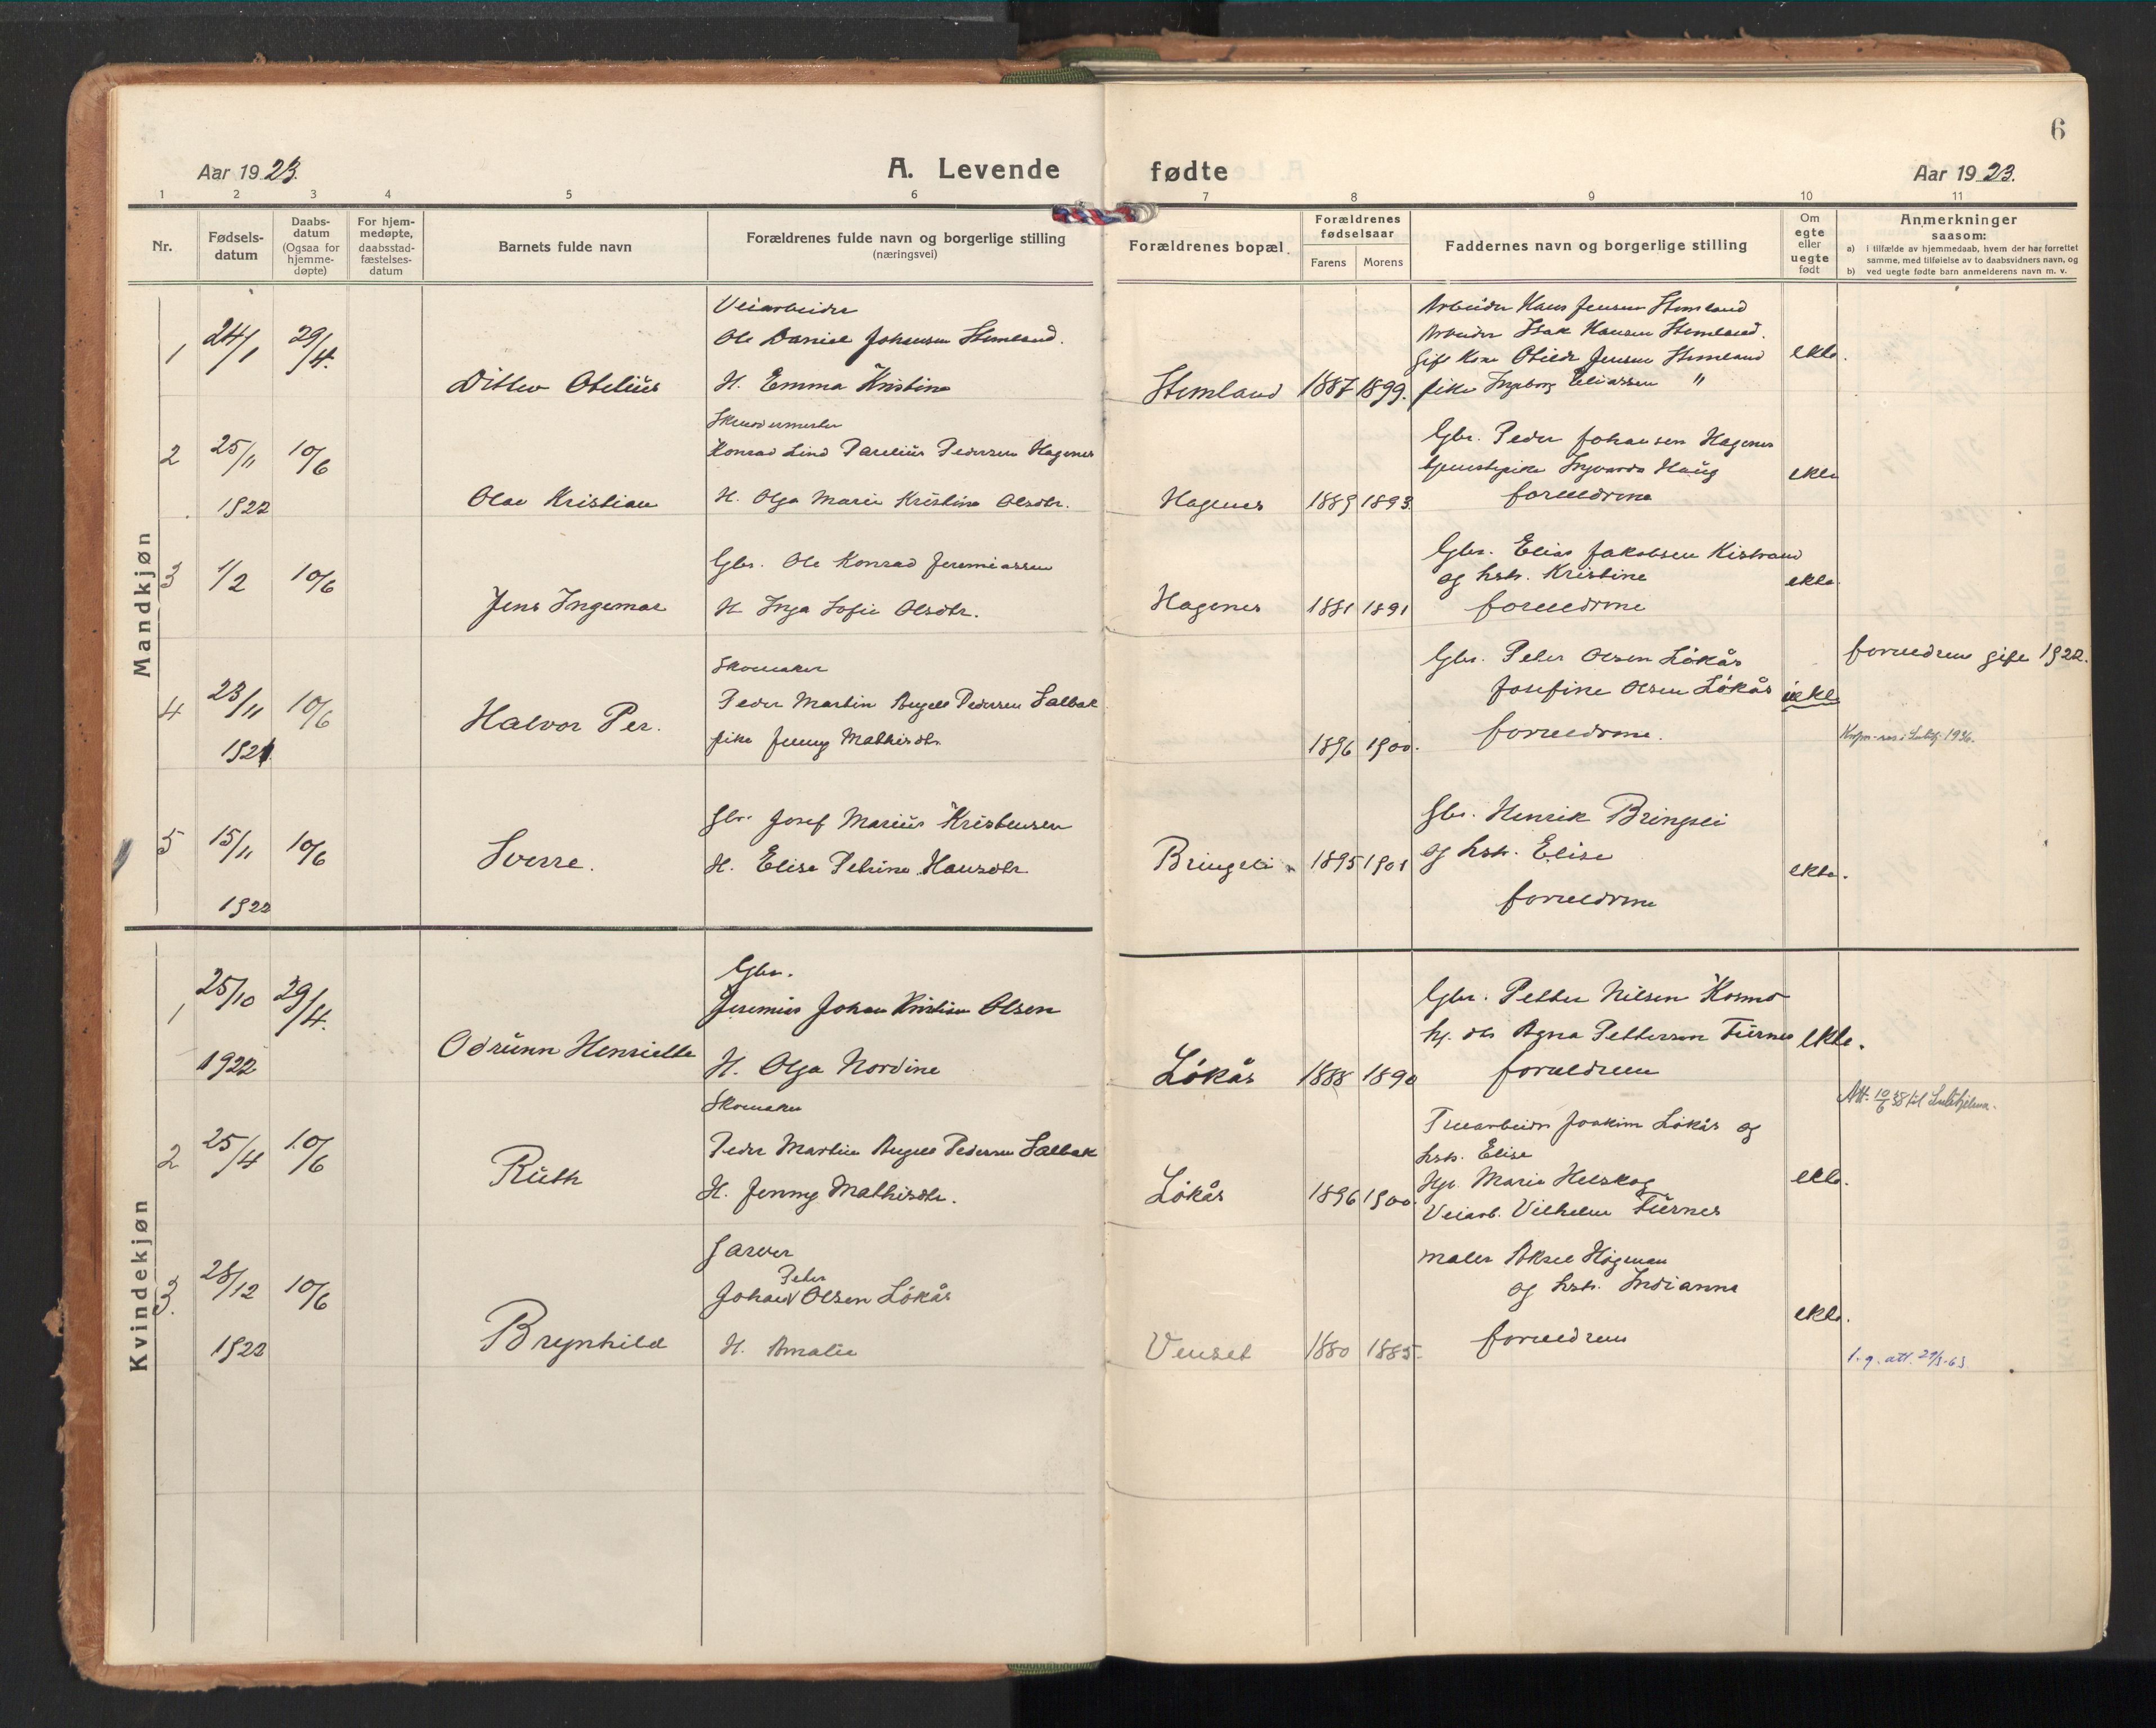 6
Aar 1923.
A. Levende
fødte
Aar 1923.
1 2 3 4 5 6 7 8 9 10 11
Nr.
Fødsels-
datum
Daabs-
datum
(Ogsaa for
hjemme-
døpte)
For hjem-
medøpte,
daabsstad-
fæstelses-
datum
Barnets fulde navn
Forældrenes fulde navn og borgerlige stilling
(næringsvei)
Forældrenes bopæl.
Forældrenes
fødselsaar
Farens Morens
Faddernes navn og borgerlige stilling
Om
egte
eller
uegte
født
Anmerkninger
saasom:
a) i tilfælde av hjemmedaab, hvem der har forrettet
samme, med tilføielse av to daabsvidners navn, og
b) ved uegte fødte barn anmelderens navn m. v.
Mandkjøn
1 24/1 29/4.
Ditlev Otelius
Veiarbeider
Ole Daniel Johansen Stemland.
H. Emma Kristine
Stemland 1887 1899.
Arbeider Hans Jensen Stemland
Arbeider Isak Hansen Stemland.
Gift Kone Otilde Jensen Stemland
pike Ingeborg Eliassen "
ekte.
2 25/11 10/6
1922
Olav Kristian
Konrad Lind Parelius Pedersen Hagenes
H. Olga Marie Kristine Olsdtr.
Hagenes 1889 1893.
Gbr. Peder Johansen Hagenes
tjenestepike Ingvarda Haug
forældrene
ekte
3 1/2 10/6
Jens Ingemar
Gbr. Ole Konrad Jeremiassen
H. Inga Sofie Olsdtr.
Hagenes 1881 1891
Gbr. Elias Jakobsen Kistrand
og hstr. Kristine
forældrene
ekte
4 23/11 10/6
1921
Halvor Per.
Skomaker
Peder Martin Angell Pedersen Salbak
pike Jenny Mathisdtr.
1896 1900.
Gbr. Peter Olsen Løkås
Josefine Olsen Løkås
forældrene.
forældrene gift 1922.
5 15/11 10/6
1922
Sverre.
Gbr. Josef Marius Kristensen
H. Elise Petrine Hansdtr.
Bringsli 1895 1901
Gbr. Henrik Bringsli
og hstr. Elise
forældrene
ekte.
Kvindekjøn
1 25/10 29/4.
1922
Odrunn Henriette
Gbr.
Jeremias Johan Kristian Olsen
H. Olga Nordine
Løkås 1888 1890
Gbr. Petter Nilsen Kosmo
hj. dtr Agna Pettersen Furnes
forældrene
ekte.
2 25/4 10/6
Ruth
Skomaker
Peder Martin Angell Pedersen Salbak
H. Jenny Mathisdtr.
Løkås 1896 1900.
Træarbeider Joakim Løkås og
hstr. Elise
Hjp. Marie Helskog
Veiarb. Vilhelm Furnes
ekte.
3. 28/12 10/6
1922
Brynhild
Garver
Peter
Johan Olsen Løkås
H. Amalie
Venset 1880 1885.
Maler Aksel Hägman
og hstr. Indianna
forældrene
ekte.